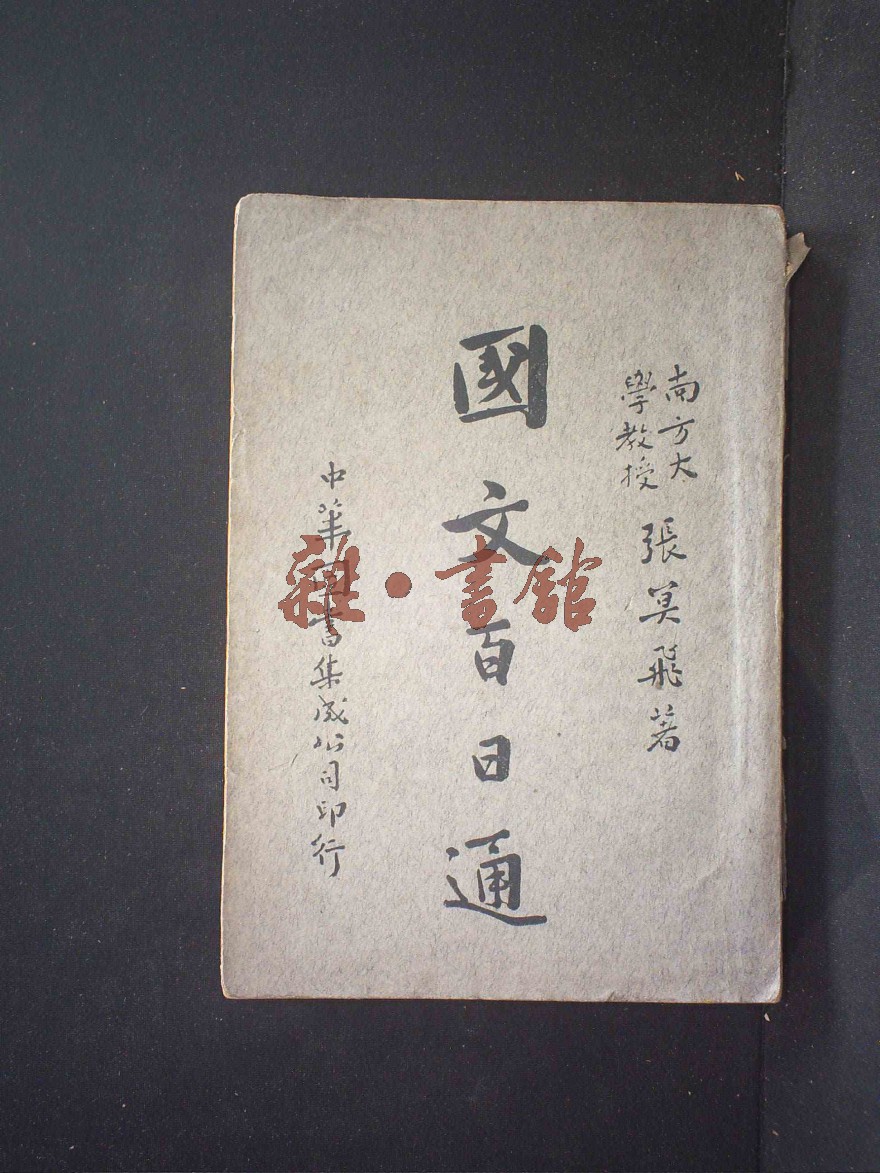 南方大
學教授
張美飛著
國文百日通
中華圖書集成公司印行
雜·書館